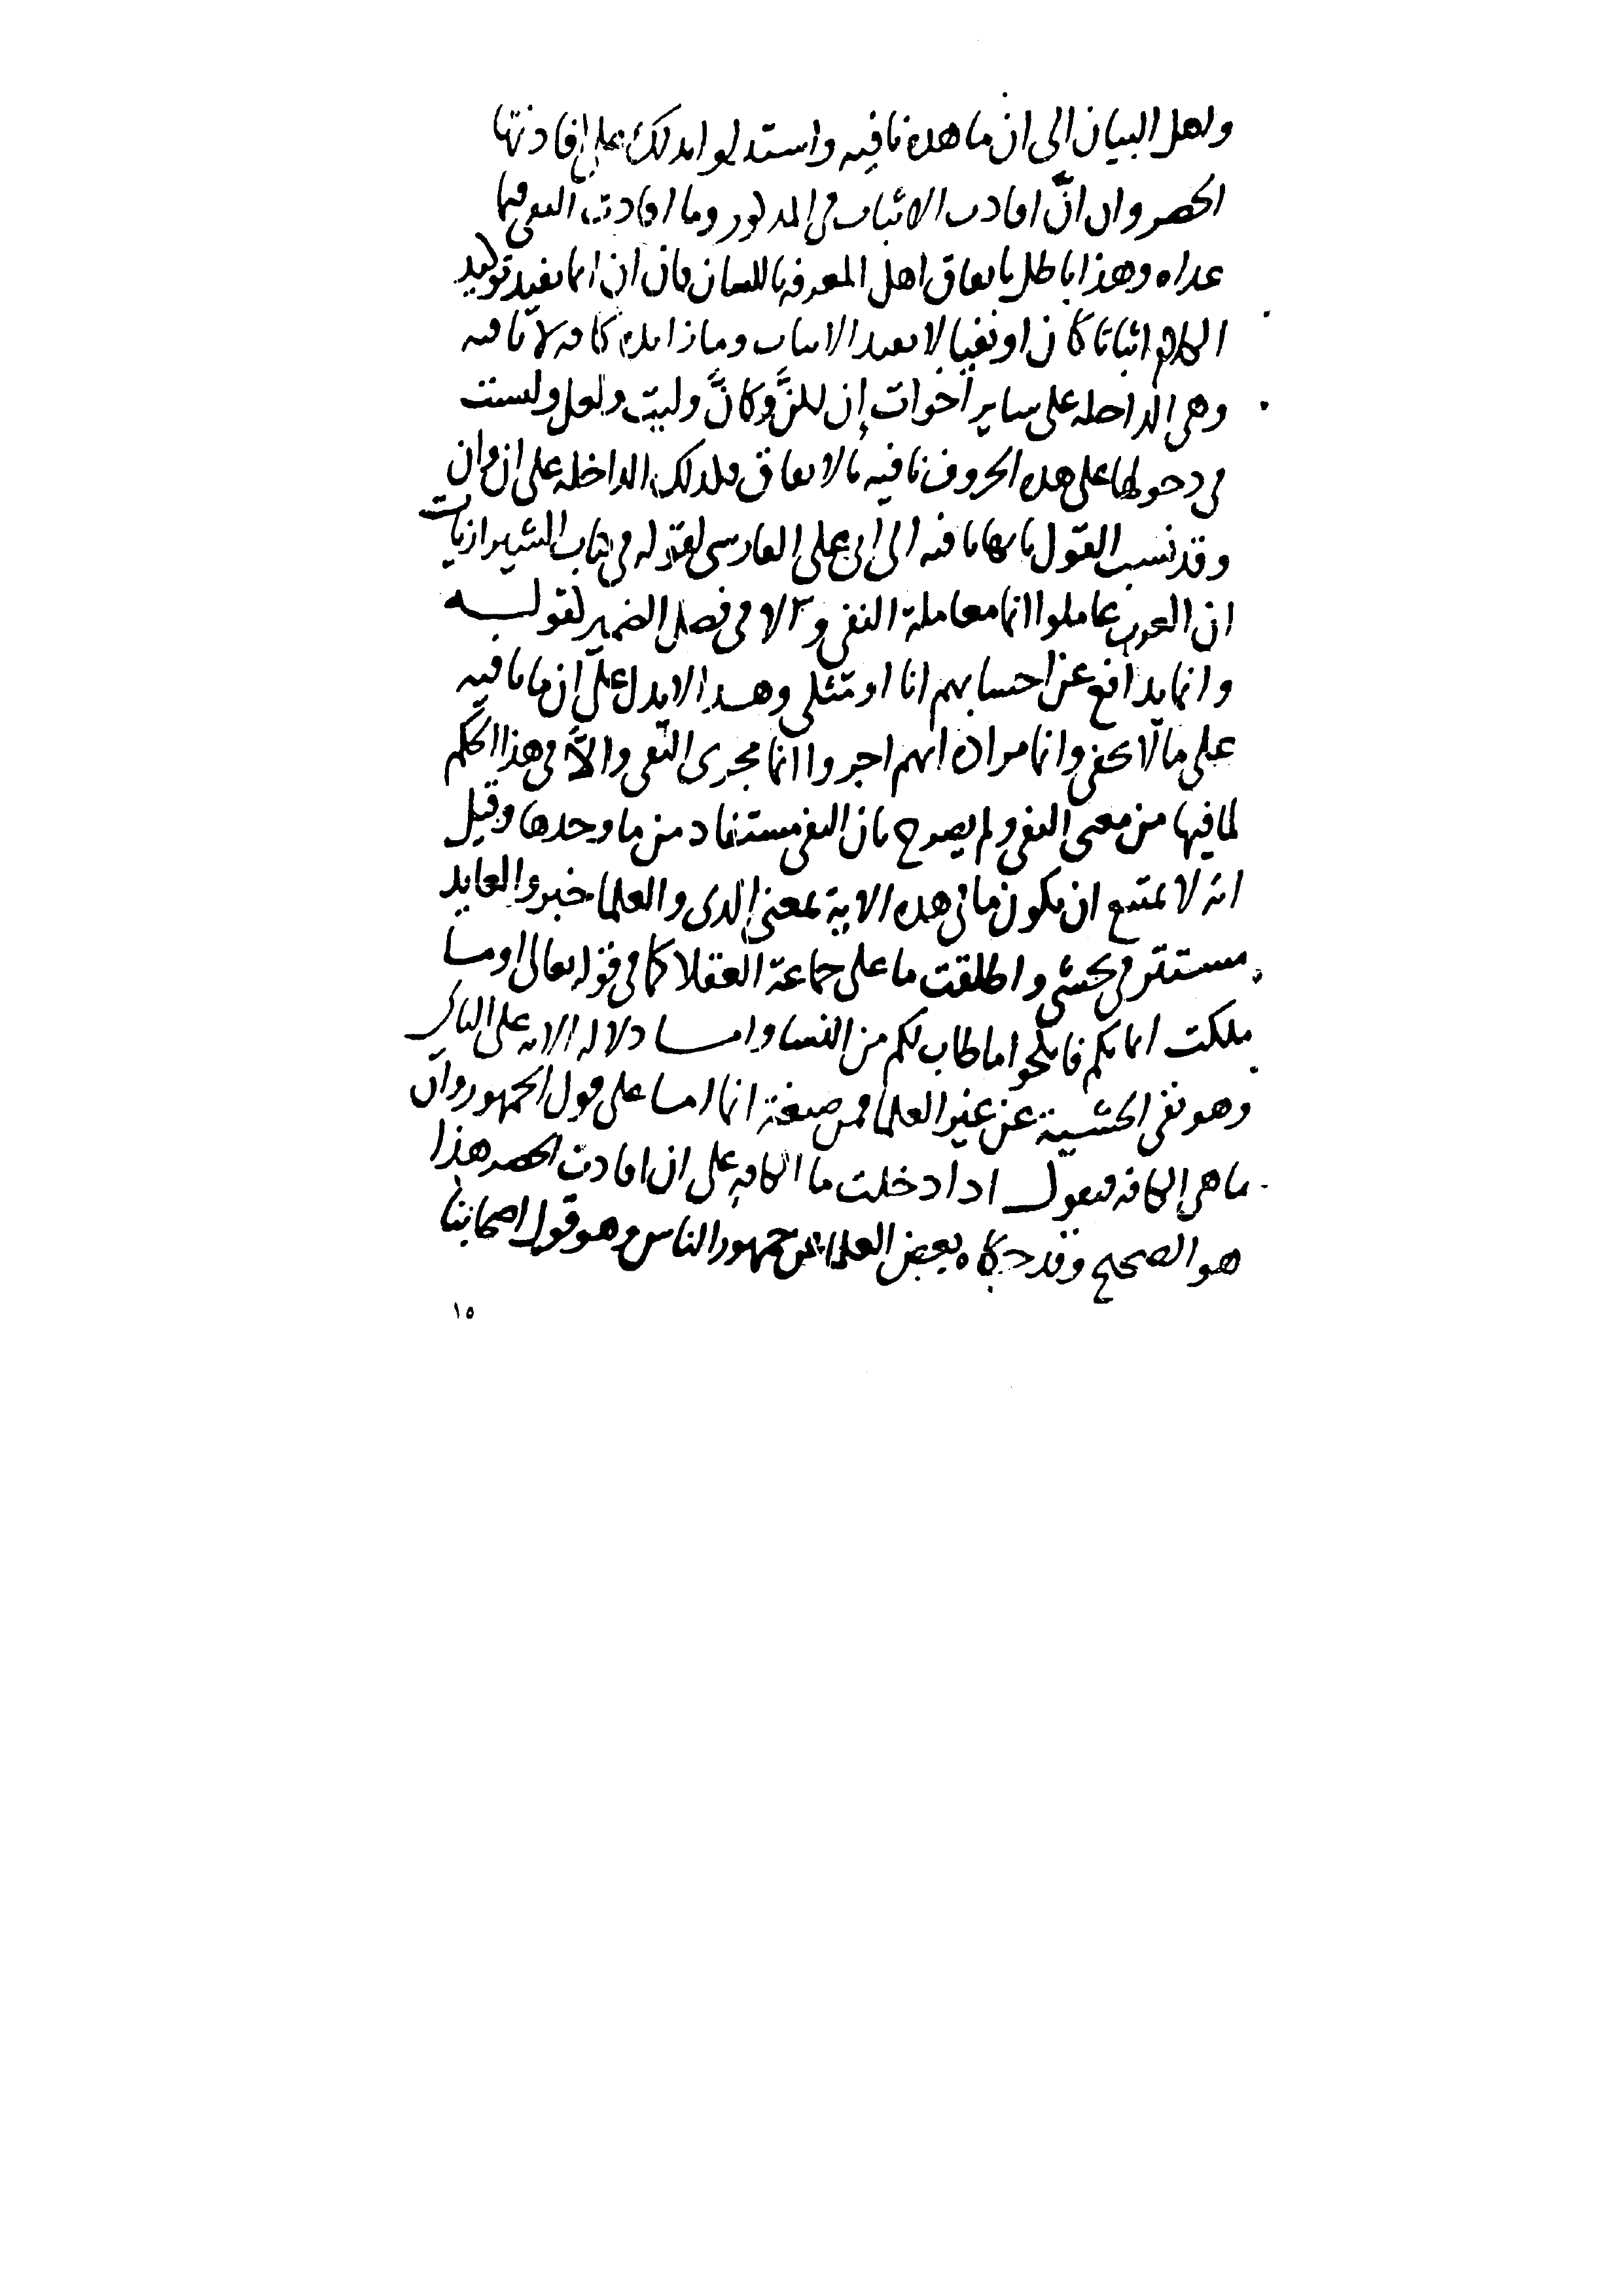 واهل البيان الى ان ما هده نافيه واستدلوا بدلك على افادتها
الحصر وان انَّ افادت الاثبات فى المدكور وما افادت النفى فيما
عداه وهذا باطل باتفاق اهل المعرفه باللسان فان ان انما يفيد توكيد
الكلام اثباتا كان او نفيا لا يفيد الاثبات وما زايده كافه لا نافيه
وهى الداخله على ساير اخوات إن لكنَّ وكانَّ وليت ولعل وليست
فى دخولها على هده الحروف نافيه بالاتفاق فلدلك الداخله على ان وان
وقد نسب القول بانها نافيه الى ابى على الفارسى لقوله فى كتاب الشيرازيات
ان العرب عاملوا انما معاملة النفى و الا فى فصل الضمير لقوله
وانما يدافع عن احسابهم انا او مثلى وهدا لا يدل على ان ما نافيه
على ما لا يخفى وانما مراده انهم اجروا انما مجرى النفى والاَّ فى هذا الحكم
لما فيها من معنى النفى ولم يصرح بان النفى مستفاد من ما وحدها وقيل
انه لا يمتنع ان يكون ما فى هده الاية بمعنى الدى والعلما خبر والعايد
مستتر فى يخشى واطلقت ما على جماعة العقلا كما فى قوله تعالى او ما
ملكت ايمانكم فانكحوا ما طاب لكم من النسا واما دلاله الايه على الثانى
وهو نفى الخشية عن غير العلما فمن صيغة انما اما على قول الجمهور وان
ما هى الكافه فيقول ادا دخلت ما الكافه على ان افادت الحصر هذا
هو الصحيح وقد حكاه بعض العلما عن جمهور الناس وهو قول اصحابنا
١٥